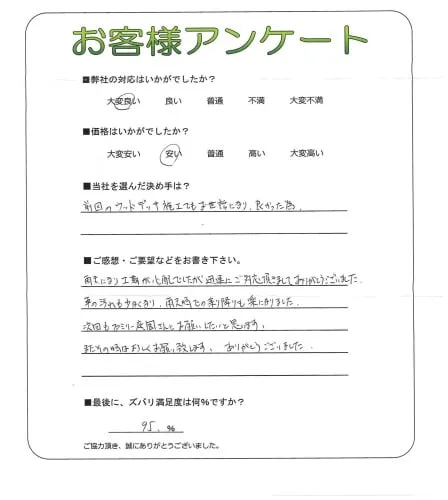 お客様アンケート
■弊社の対応はいかがでしたか?
大変良い 良い 普通 不満 大変不満
■価格はいかがでしたか?
大変安い 安い 普通 高い 大変高い
■当社を選んだ決め手は?
前回のウッドデッキ施工でもお世話になり、良かった為、
■ご感想・ご要望などをお書き下さい。
雨天になり工事が心配でしたが迅速にご対応頂きましてありがとうございました。
車の汚れも少なくなり、雨天時での乗り降りも楽になりました。
次回もファミリー庭園さんとお願いしたいと思います。
またその時はよろしくお願い致します。ありがとうございました。
■最後に、ズバリ満足度は何%ですか?
95. %
ご協力頂き、誠にありがとうございました。